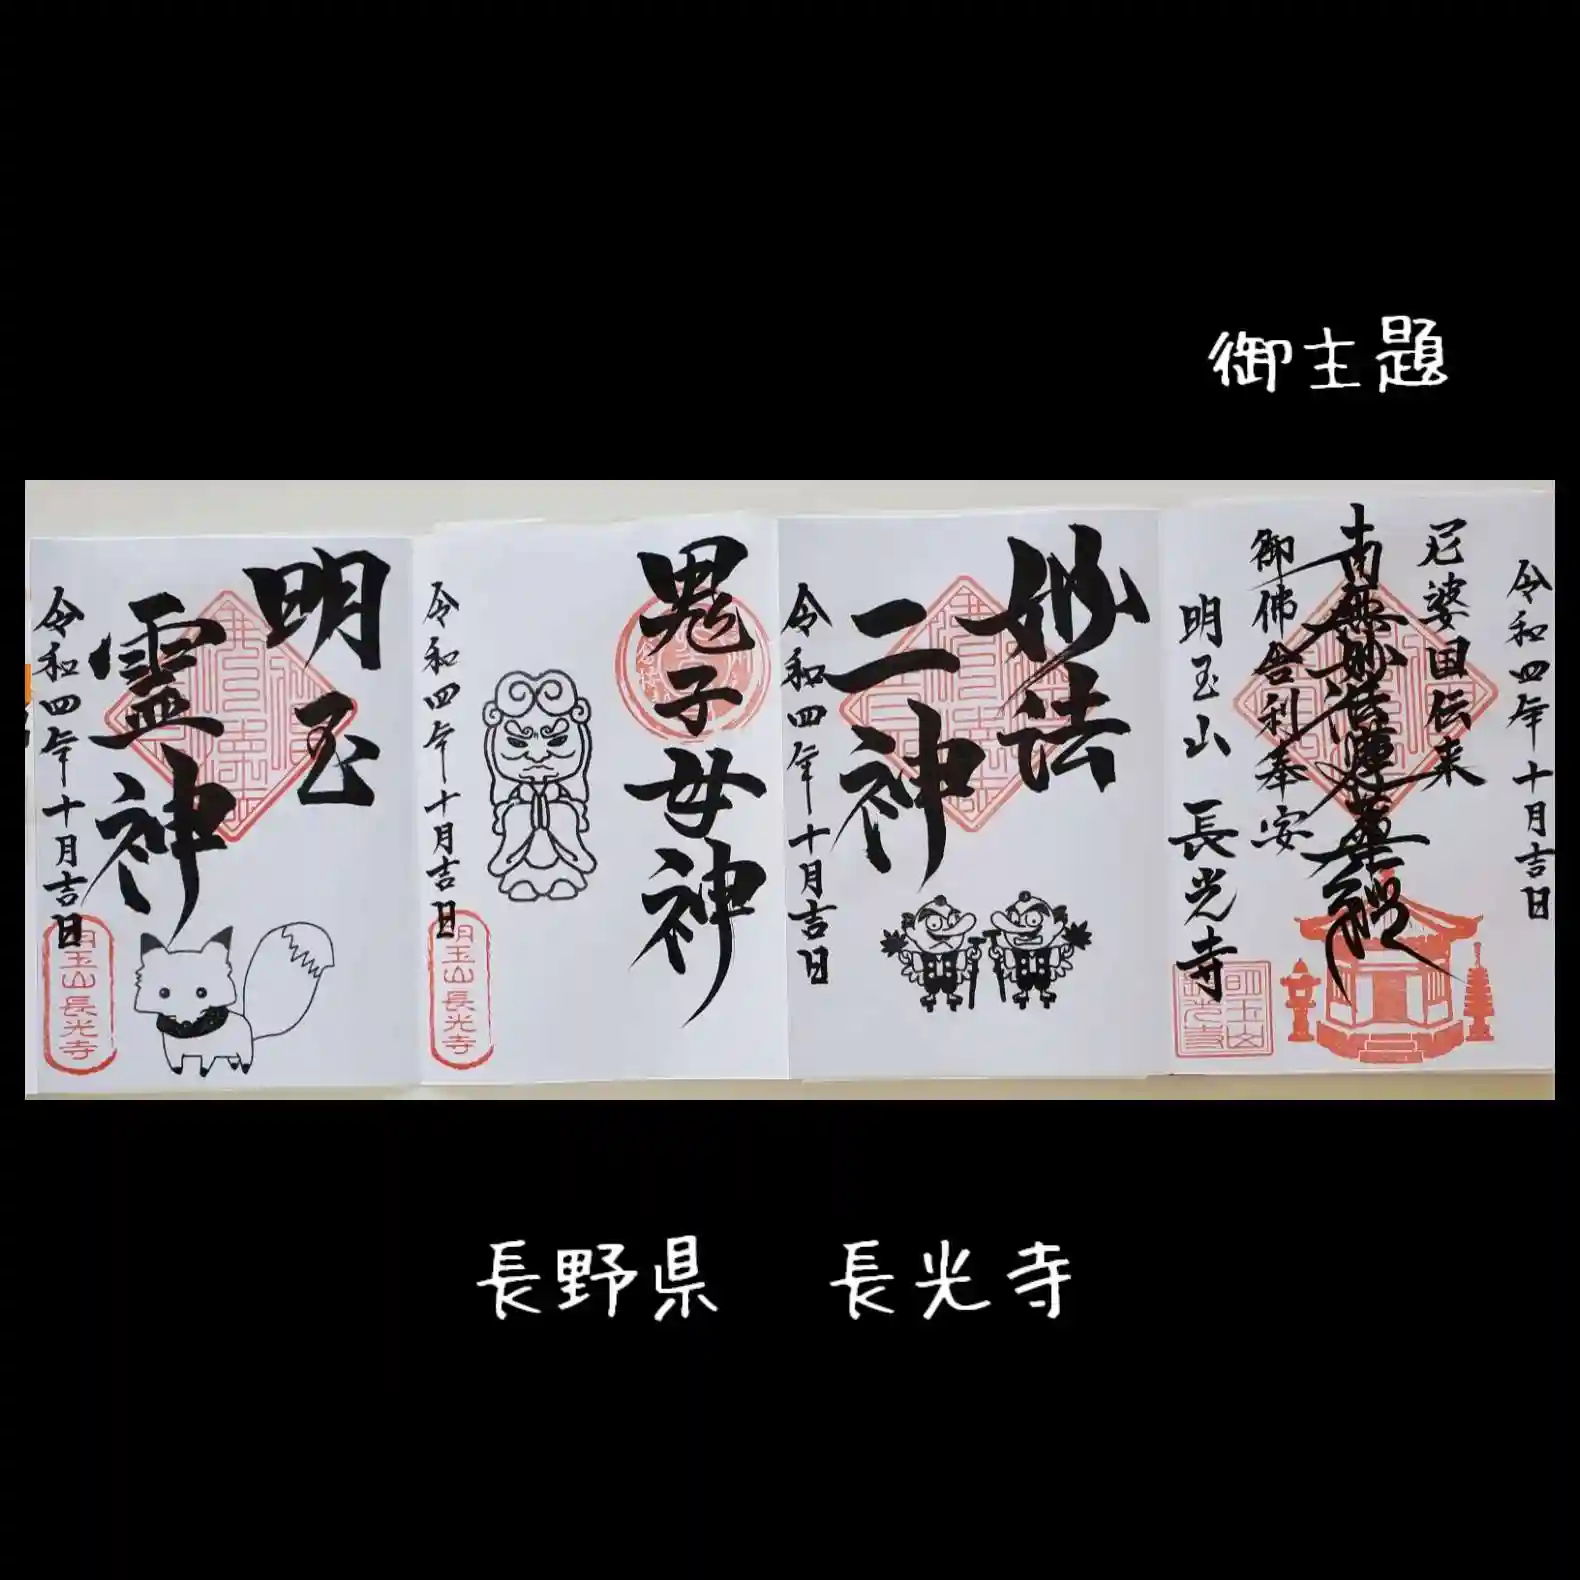 御主題
令和四年十月吉日
尼婆国伝来
南無妙法蓮華経
御佛舎利奉安
明玉山 長光寺
妙法
二神
令和四年十月吉日
鬼子母神
令和四年十月吉日
明玉山長光寺
明玉
霊神
令和四年十月吉日
明玉山長光寺
長野県 長光寺